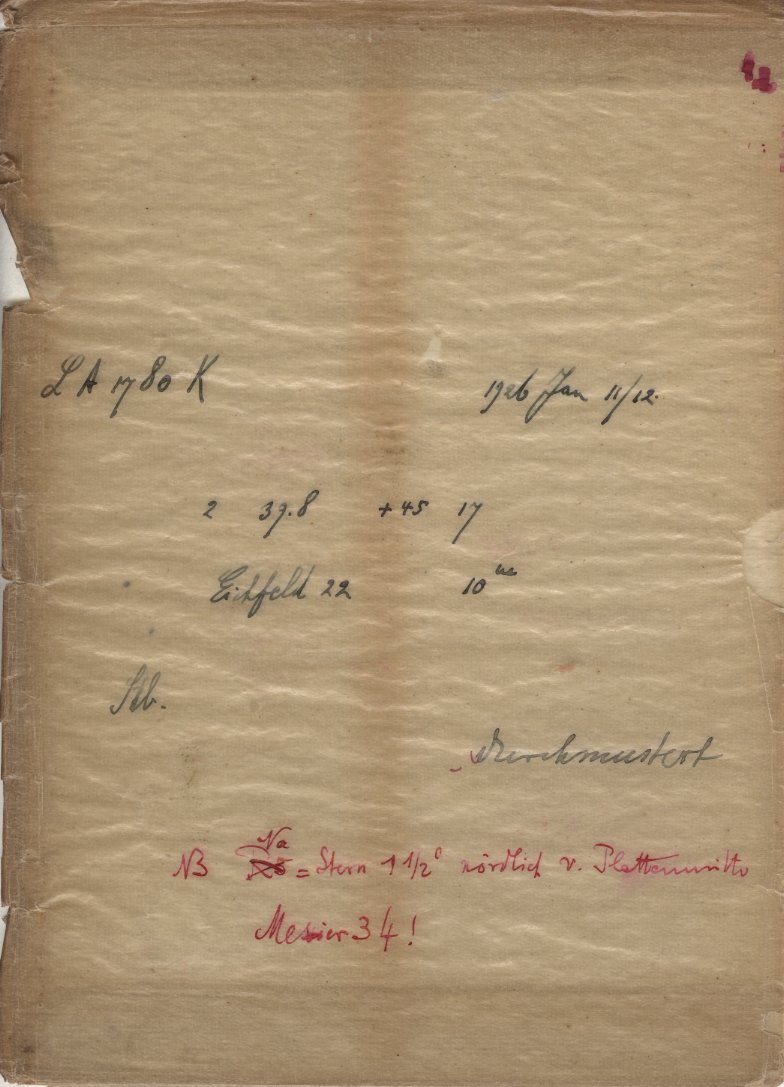 LA 1780 K 1926 Jan 11/12.
2 39.8 +45 17
Eichfeld 22 10ᵐ
durchmustert
NB Na = Stern 1 1/2° nördlich v. Plattenmitte
Messier 34!